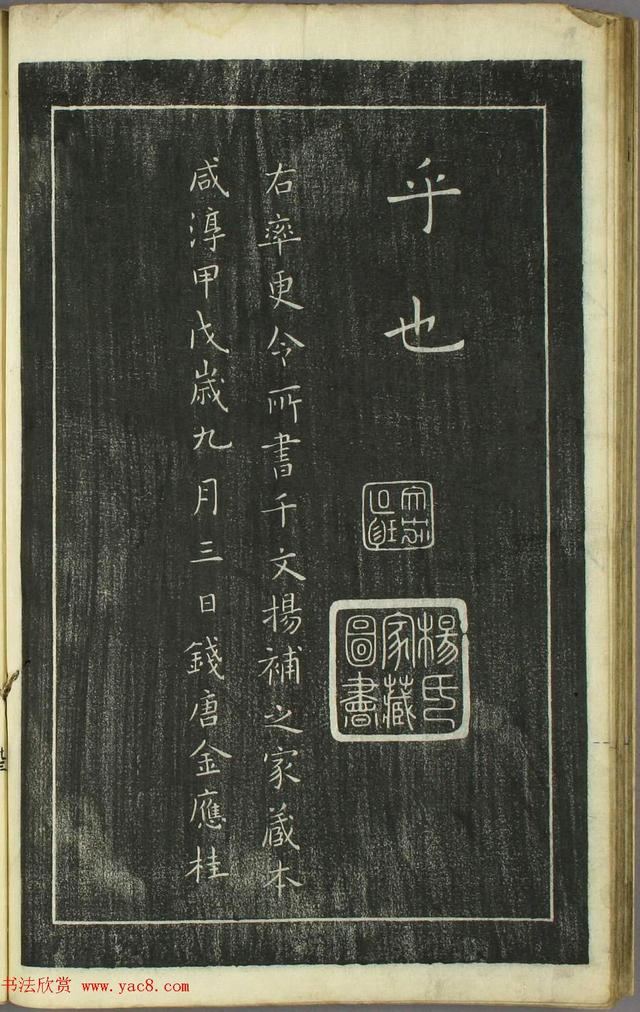 乎也
楊氏家藏圖書
右率更令所書千文楊補之家藏本
咸淳甲戊歲九月三日錢唐金應桂
九三
书法欣赏 www.yac8.com